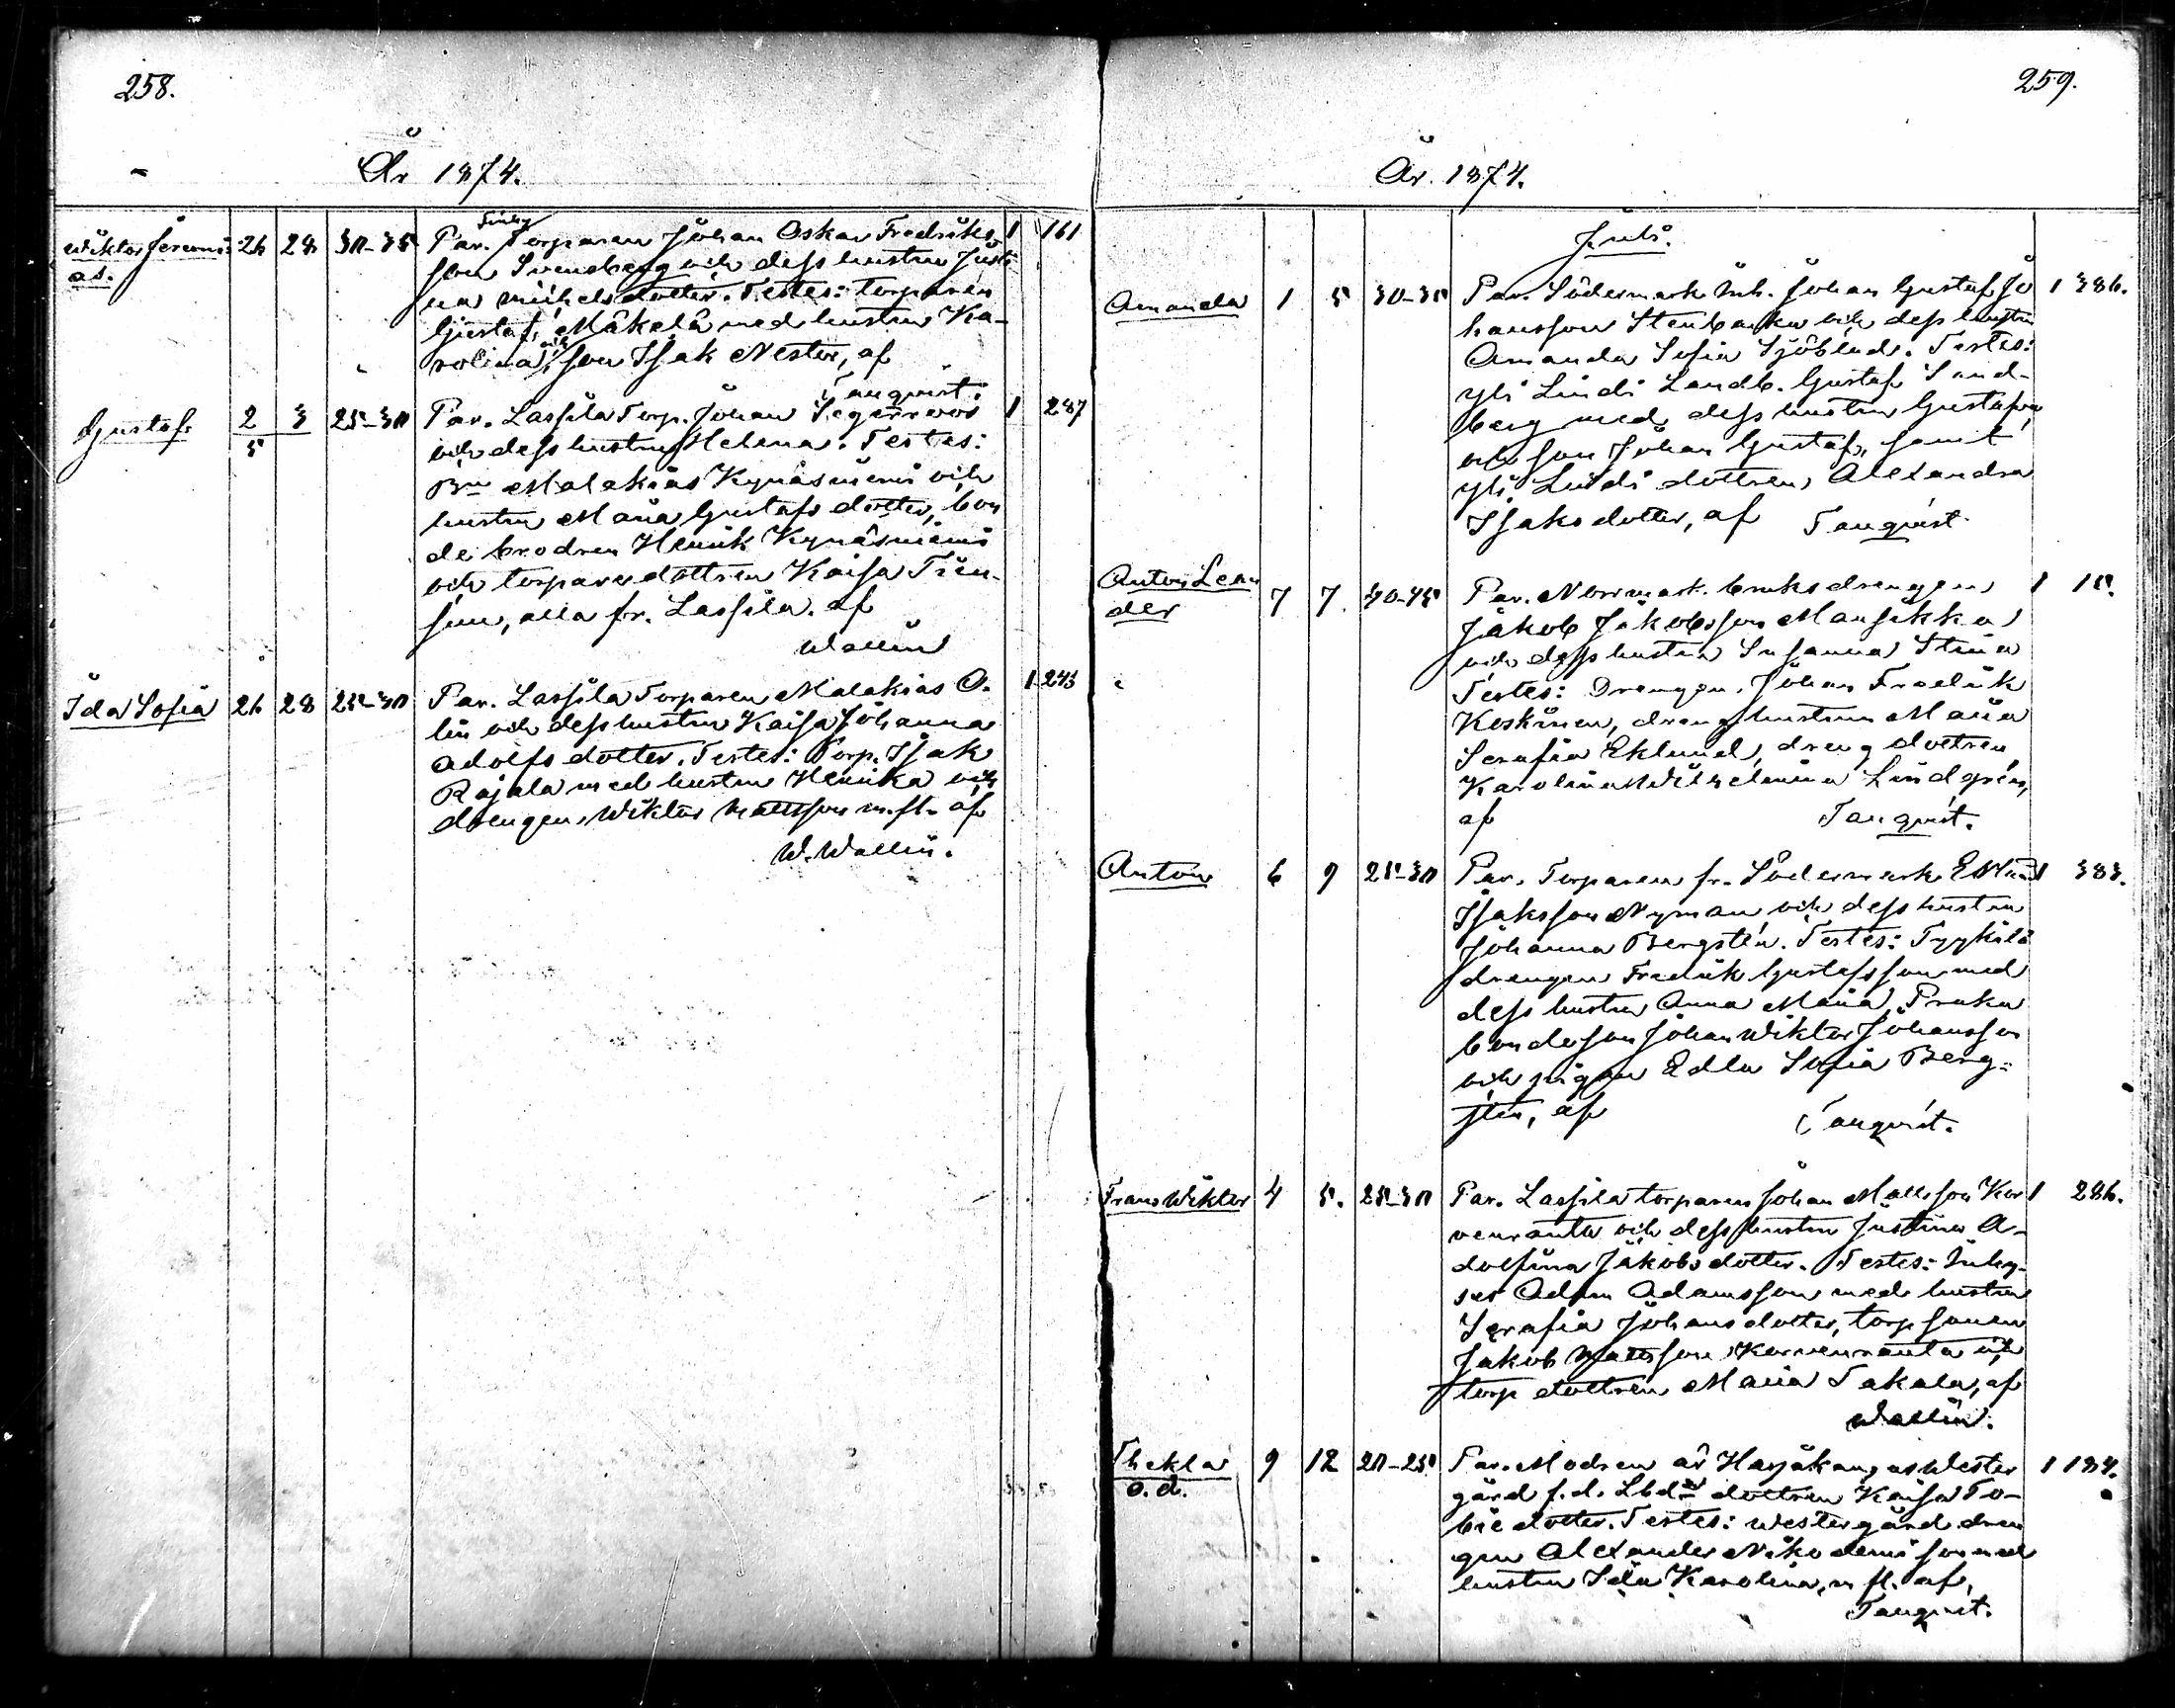 258.
År 1874.
Wiktor Jeremi
as.
26 28 30-35
Par. Torparen Johan Oskar Fredriks
son Svensberg och dess hustru Justi
na Michelsdotter. Testes: torparen
Gustaf Mäkelä med hustru Ka-
rolina, och son Isak Nestor, af
Tanqvist.
1 161
Gustaf
2/5 3 25-30
Par. Lassila Torp. Johan
och dess hustru Helena. Testes:
Bn Malakias Kynäsniemi och
hustru Maria Gustafsdotter, bon
de brodren Henrik Kynäsniemi
och torparedottren Kaisa
alla fr. Lassila. af
Wallin
1 287
Ida Sofia
26 28 25-30
Par. Lassila Torparen Malakias O-
lin och dess hustru Kaisa Johanna
Adolfsdotter. Testes: Torp. Isak
Rajala med hustru Henrika och
drengen Wiktor Mattsson m.fl. af
W. Wallin.
1 243
259.
År 1874.
Juli.
Amanda
1 5 30-35
Par. Södermark Inh. Johan Gustaf Jo
hansson Stenbacka och dess hustru
Amanda Sofia Sjöblad. Testes:
Yli Lindi Landb. Gustaf Sand-
berg med dess hustru Gustafva
och son Johan Gustaf, samt
Yli Lindi dottren Alexandra
Isaksdotter, af Tanqvist
1 386.
Anton Lean
der
7 7 40-45
Par. Norrmark bruksdrengen
Jakob Jakobsson Mansikka
och dess hustru Susanna Stina
Testes: Drengen Johan Fredrik
Koskinen, dreng hustrun Maria
Serafia Eklund, drengdottren
Karolina Wilhelmina Lindgrén,
af
Tanqvist.
1 15.
Anton
6 9 25-30
Par. Torparen fr. Södermark
Isaksson Nyman och dess hustru
Johanna Bergstén. Testes: Tyykilä
drengen Fredrik Gustafsson med
dess hustru Anna Maria,
bondeson Johan Wiktor Johansson
och pigan Edla Sofia Berg-
stén, af
Tanqvist.
1 383.
Frans Wiktor
4 5. 25-30
Par. Lassila torparen Johan Mattsson Kor
venranta och dess hustru Justina A-
dolfina Jakobsdotter. Testes: Inhy-
ses Adam Adamsson med hustru
Serafia Johansdotter, torpsonen
Jakob Mattsson Korvenranta och
torpdottren Maria Takala, af
Wallin.
1 286.
Thekla
o.d.
9 12 20-25
Par. Modren är Harjakangas Wester
gård f.d. Lbds dottren Kaisa To-
bie dotter. Testes: Westergård dren
gen Alexander Nikodemisson med
hustru Ida Karolina, m.fl. af,
Tanqvist.
1 184.